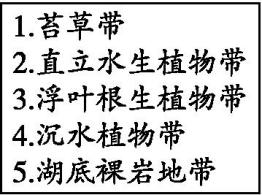 1.苔草带
2.直立水生植物带
3.浮叶根生植物带
4.沉水植物带
5.湖底裸岩地带